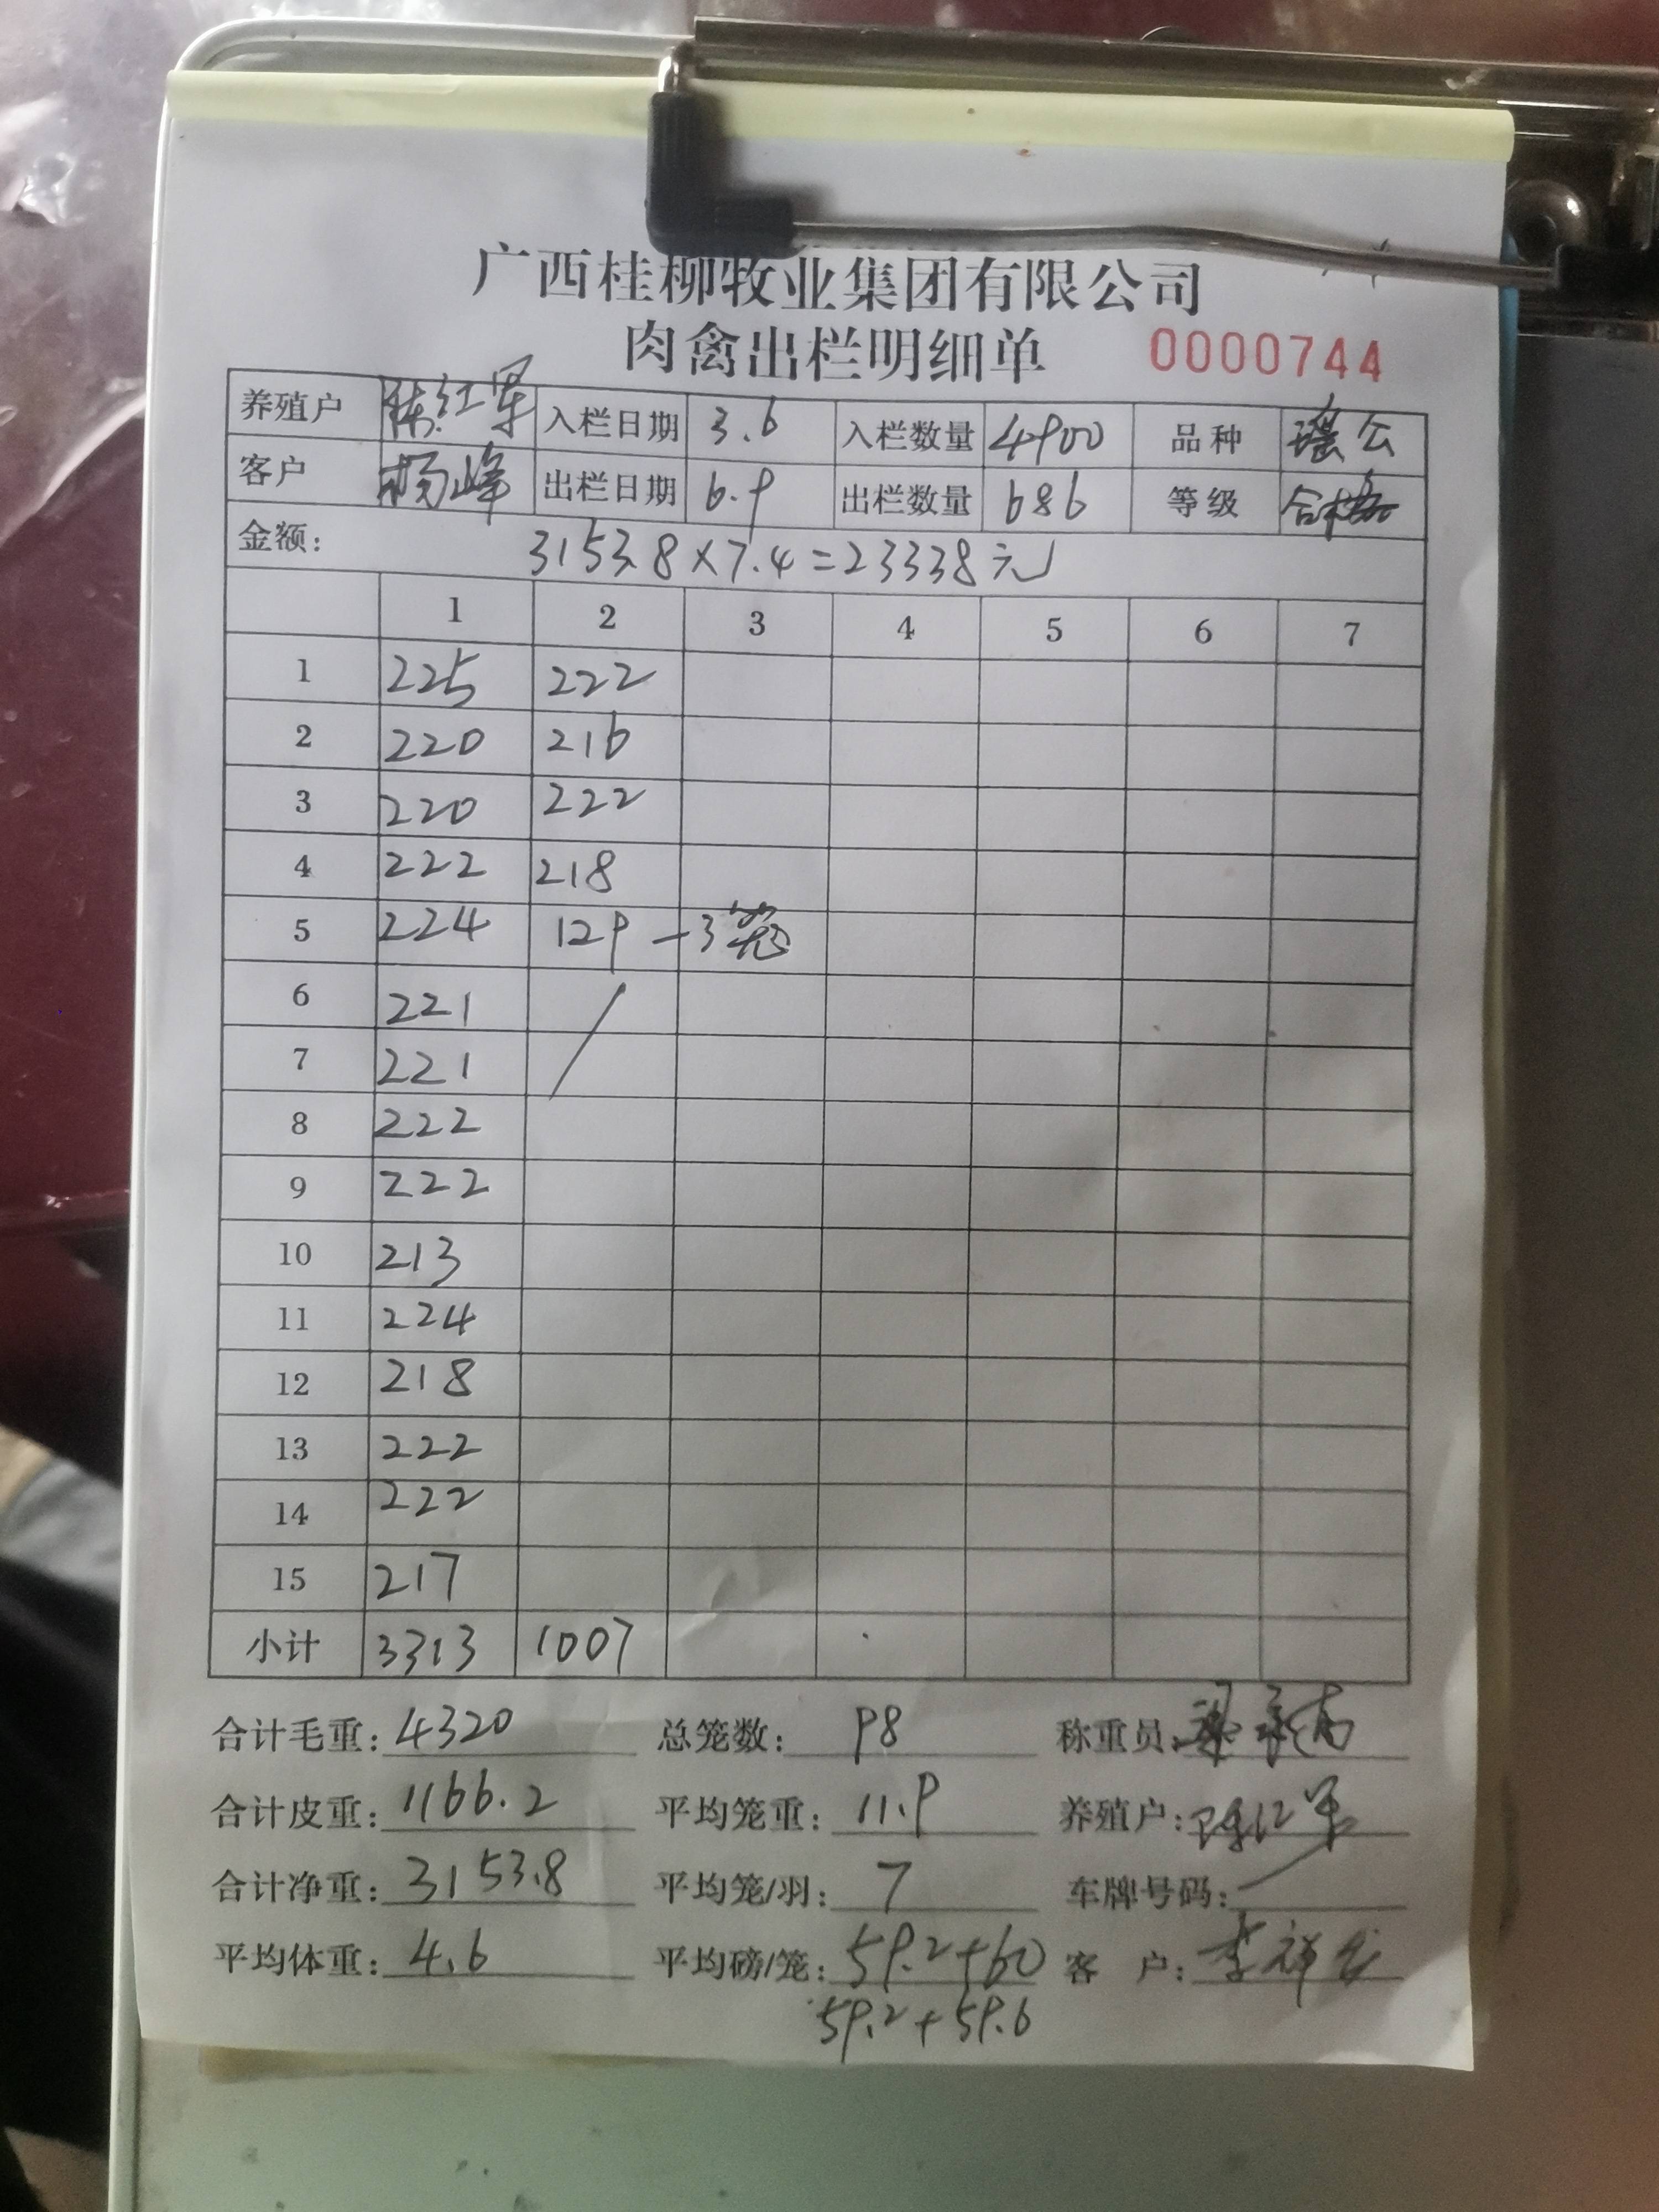 广西桂柳牧业集团有限公司
肉禽出栏明细单 0000744
养殖户 陈红军 入栏日期 3.6 入栏数量 4900 品种 瑶公
客户 杨峰 出栏日期 6.9 出栏数量 686 等级 合格
金额: 3153.8×7.4=23338元
1 2 3 4 5 6 7
1 225 222
2 220 216
3 220 222
4 222 218
5 224 129 —3笼
6 221
7 221
8 222
9 222
10 213
11 224
12 218
13 222
14 222
15 217
小计 3313 1007
合计毛重: 4320 总笼数: 98 称重员:
合计皮重: 1166.2 平均笼重: 11.9 养殖户: 陈红军
合计净重: 3153.8 平均笼/羽: 7 车牌号码:
平均体重: 4.6 平均磅/笼: 59.2+60 客 户:
59.2+59.6